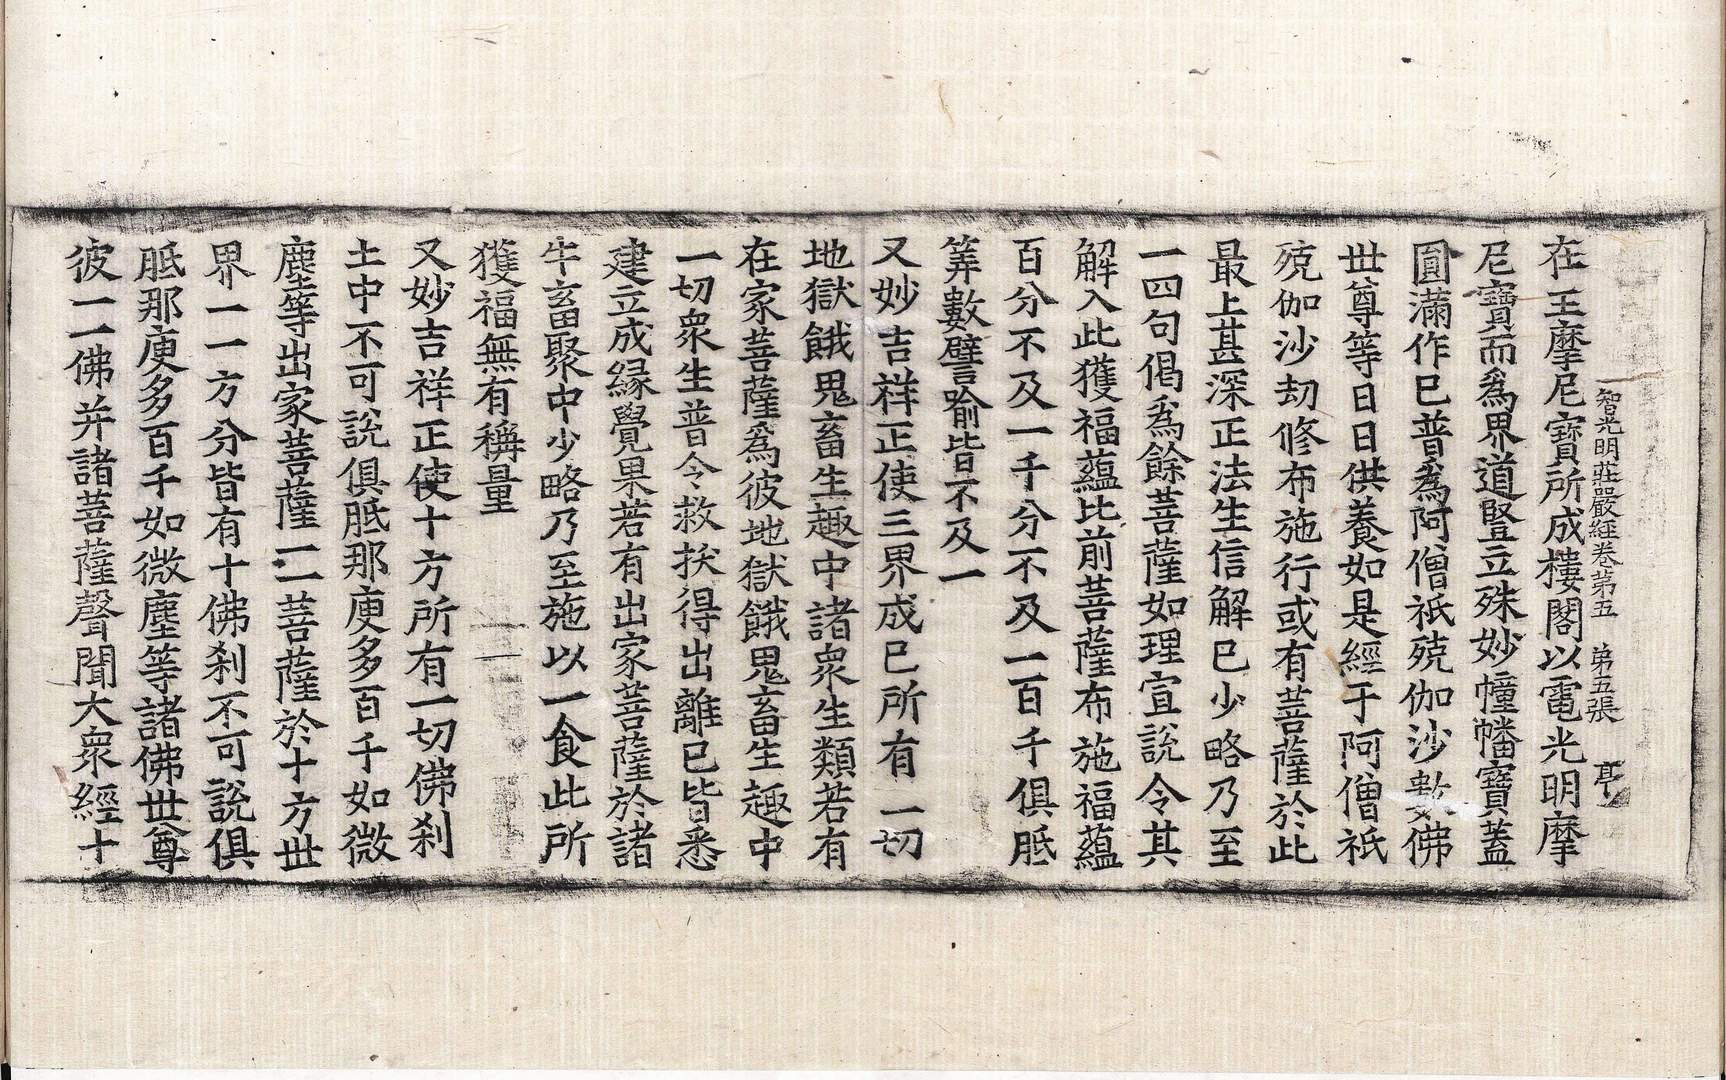 智光明莊嚴經卷第五　第五張　亭
在王摩尼寶所成樓閣以電光明摩
尼寶而爲界道豎立殊妙幢幡寶蓋
圓滿作已普爲阿僧祇殑伽沙數佛
世尊等日日供養如是經于阿僧祇
殑伽沙劫修布施行或有菩薩於此
最上甚深正法生信解已少略乃至
一四句偈爲餘菩薩如理宣說令其
解入此獲福蘊比前菩薩布施福蘊
百分不及一千分不及一百千俱胝
筭數譬喻皆不及一
又妙吉祥正使三界成已所有一切
地獄餓鬼畜生趣中諸衆生類若有
在家菩薩爲彼地獄餓鬼畜生趣中
一切衆生普令救拔得出離已皆悉
建立成緣覺果若有出家菩薩於諸
牛畜聚中少略乃至施以一食此所
獲福無有稱量
又妙吉祥正使十方所有一切佛刹
土中不可說俱胝那庾多百千如微
塵等出家菩薩一一菩薩於十方世
界一一方分皆有十佛刹不可說俱
胝那庾多百千如微塵等諸佛世尊
彼一一佛并諸菩薩聲聞大衆經十